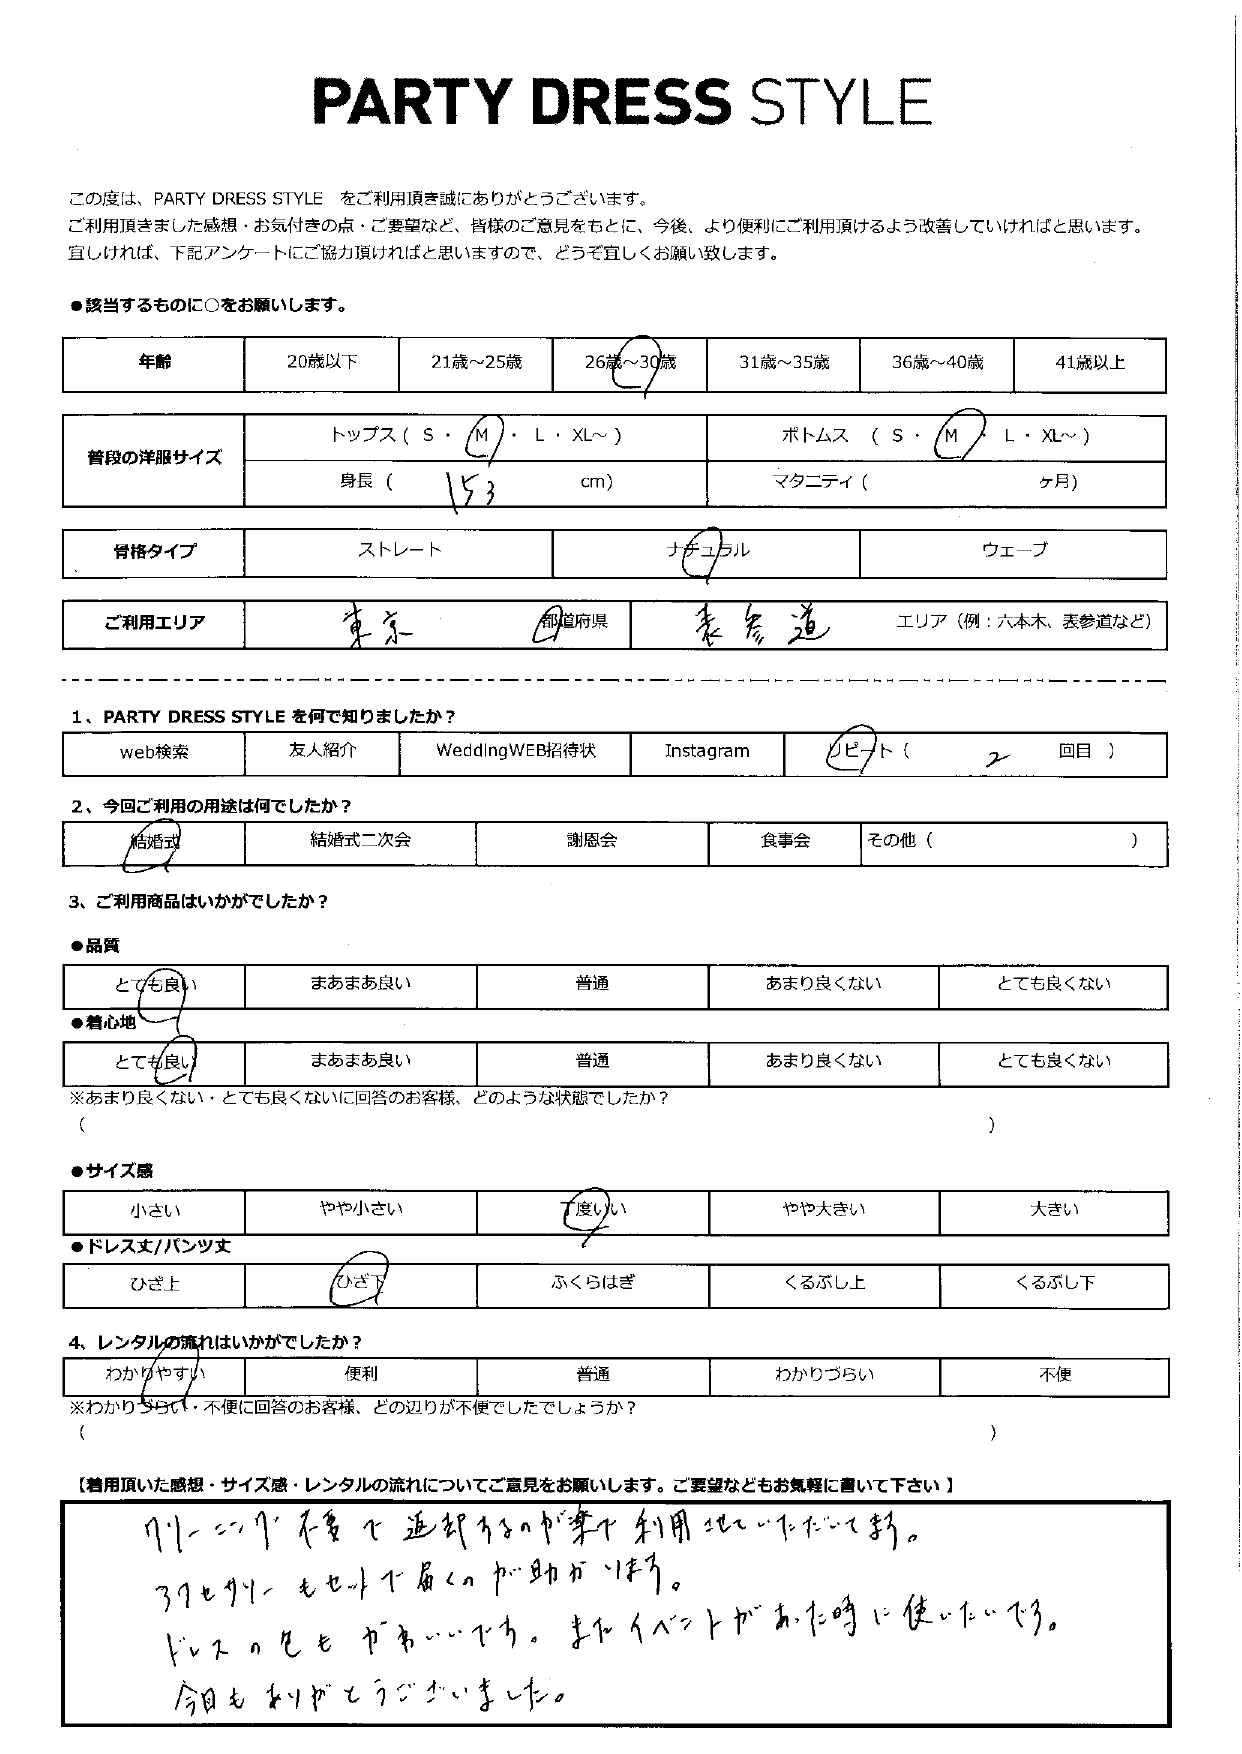 PARTY DRESS STYLE
この度は、PARTY DRESS STYLE をご利用頂き誠にありがとうございます。
ご利用頂きました感想・お気付きの点・ご要望など、皆様のご意見をもとに、今後、より便利にご利用頂けるよう改善していければと思います。
宜しければ、下記アンケートにご協力頂ければと思いますので、どうぞ宜しくお願い致します。
●該当するものに○をお願いします。
年齢 20歳以下 21歳～25歳 26歳～30歳 31歳～35歳 36歳～40歳 41歳以上
普段の洋服サイズ トップス ( S ・ M ・ L ・ XL～ ) ボトムス ( S ・ M ・ L ・ XL～ )
身長 ( 153 cm) マタニティ ( ヶ月)
骨格タイプ ストレート ナチュラル ウェーブ
ご利用エリア 東京 都道府県 表参道 エリア（例：六本木、表参道など）
1、PARTY DRESS STYLE を何で知りましたか？
web検索 友人紹介 WeddingWEB招待状 Instagram リピート ( 2 回目 )
2、今回ご利用の用途は何でしたか？
結婚式 結婚式二次会 謝恩会 食事会 その他 ( )
3、ご利用商品はいかがでしたか？
●品質
とても良い まあまあ良い 普通 あまり良くない とても良くない
●着心地
とても良い まあまあ良い 普通 あまり良くない とても良くない
※あまり良くない・とても良くないに回答のお客様、どのような状態でしたか？
( )
●サイズ感
小さい やや小さい 丁度いい やや大きい 大きい
●ドレス丈/パンツ丈
ひざ上 ひざ下 ふくらはぎ くるぶし上 くるぶし下
4、レンタルの流れはいかがでしたか？
わかりやすい 便利 普通 わかりづらい 不便
※わかりづらい・不便に回答のお客様、どの辺りが不便でしたでしょうか？
( )
【着用頂いた感想・サイズ感・レンタルの流れについてご意見をお願いします。ご要望などもお気軽に書いて下さい 】
クリーニング不要で返却するのが楽で利用させていただいてます。
アクセサリーもセットで届くのが助かります。
ドレスの色もかわいいです。またイベントがあった時に使いたいです。
今回もありがとうございました。